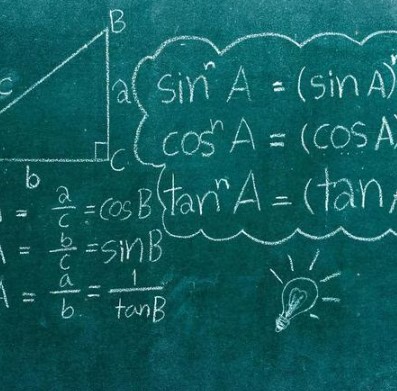 B
c
a
C
b
sinⁿ A = (sin A)ⁿ
cosⁿ A = (cos A)
tanⁿ A = (tan A
= a/c = cos B
A = b/c = sin B
A = a/b = 1/tan B